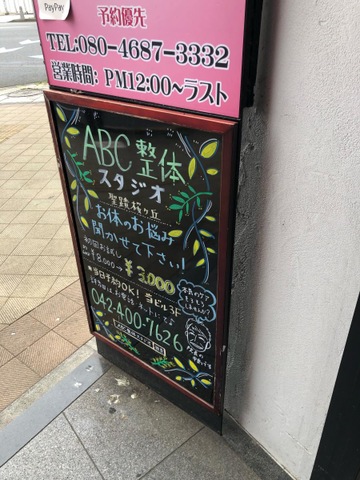 PayPay
予約優先
TEL:080-4687-3332
営業時間: PM12:00〜ラスト
ABC整体
スタジオ
聖蹟桜ヶ丘
お体のお悩み
聞かせて下さい!
初回お試し
¥8,000→¥3,000
当日予約OK! 当ビル3F
詳細はお電話、ネットにて♪
042-400-7626